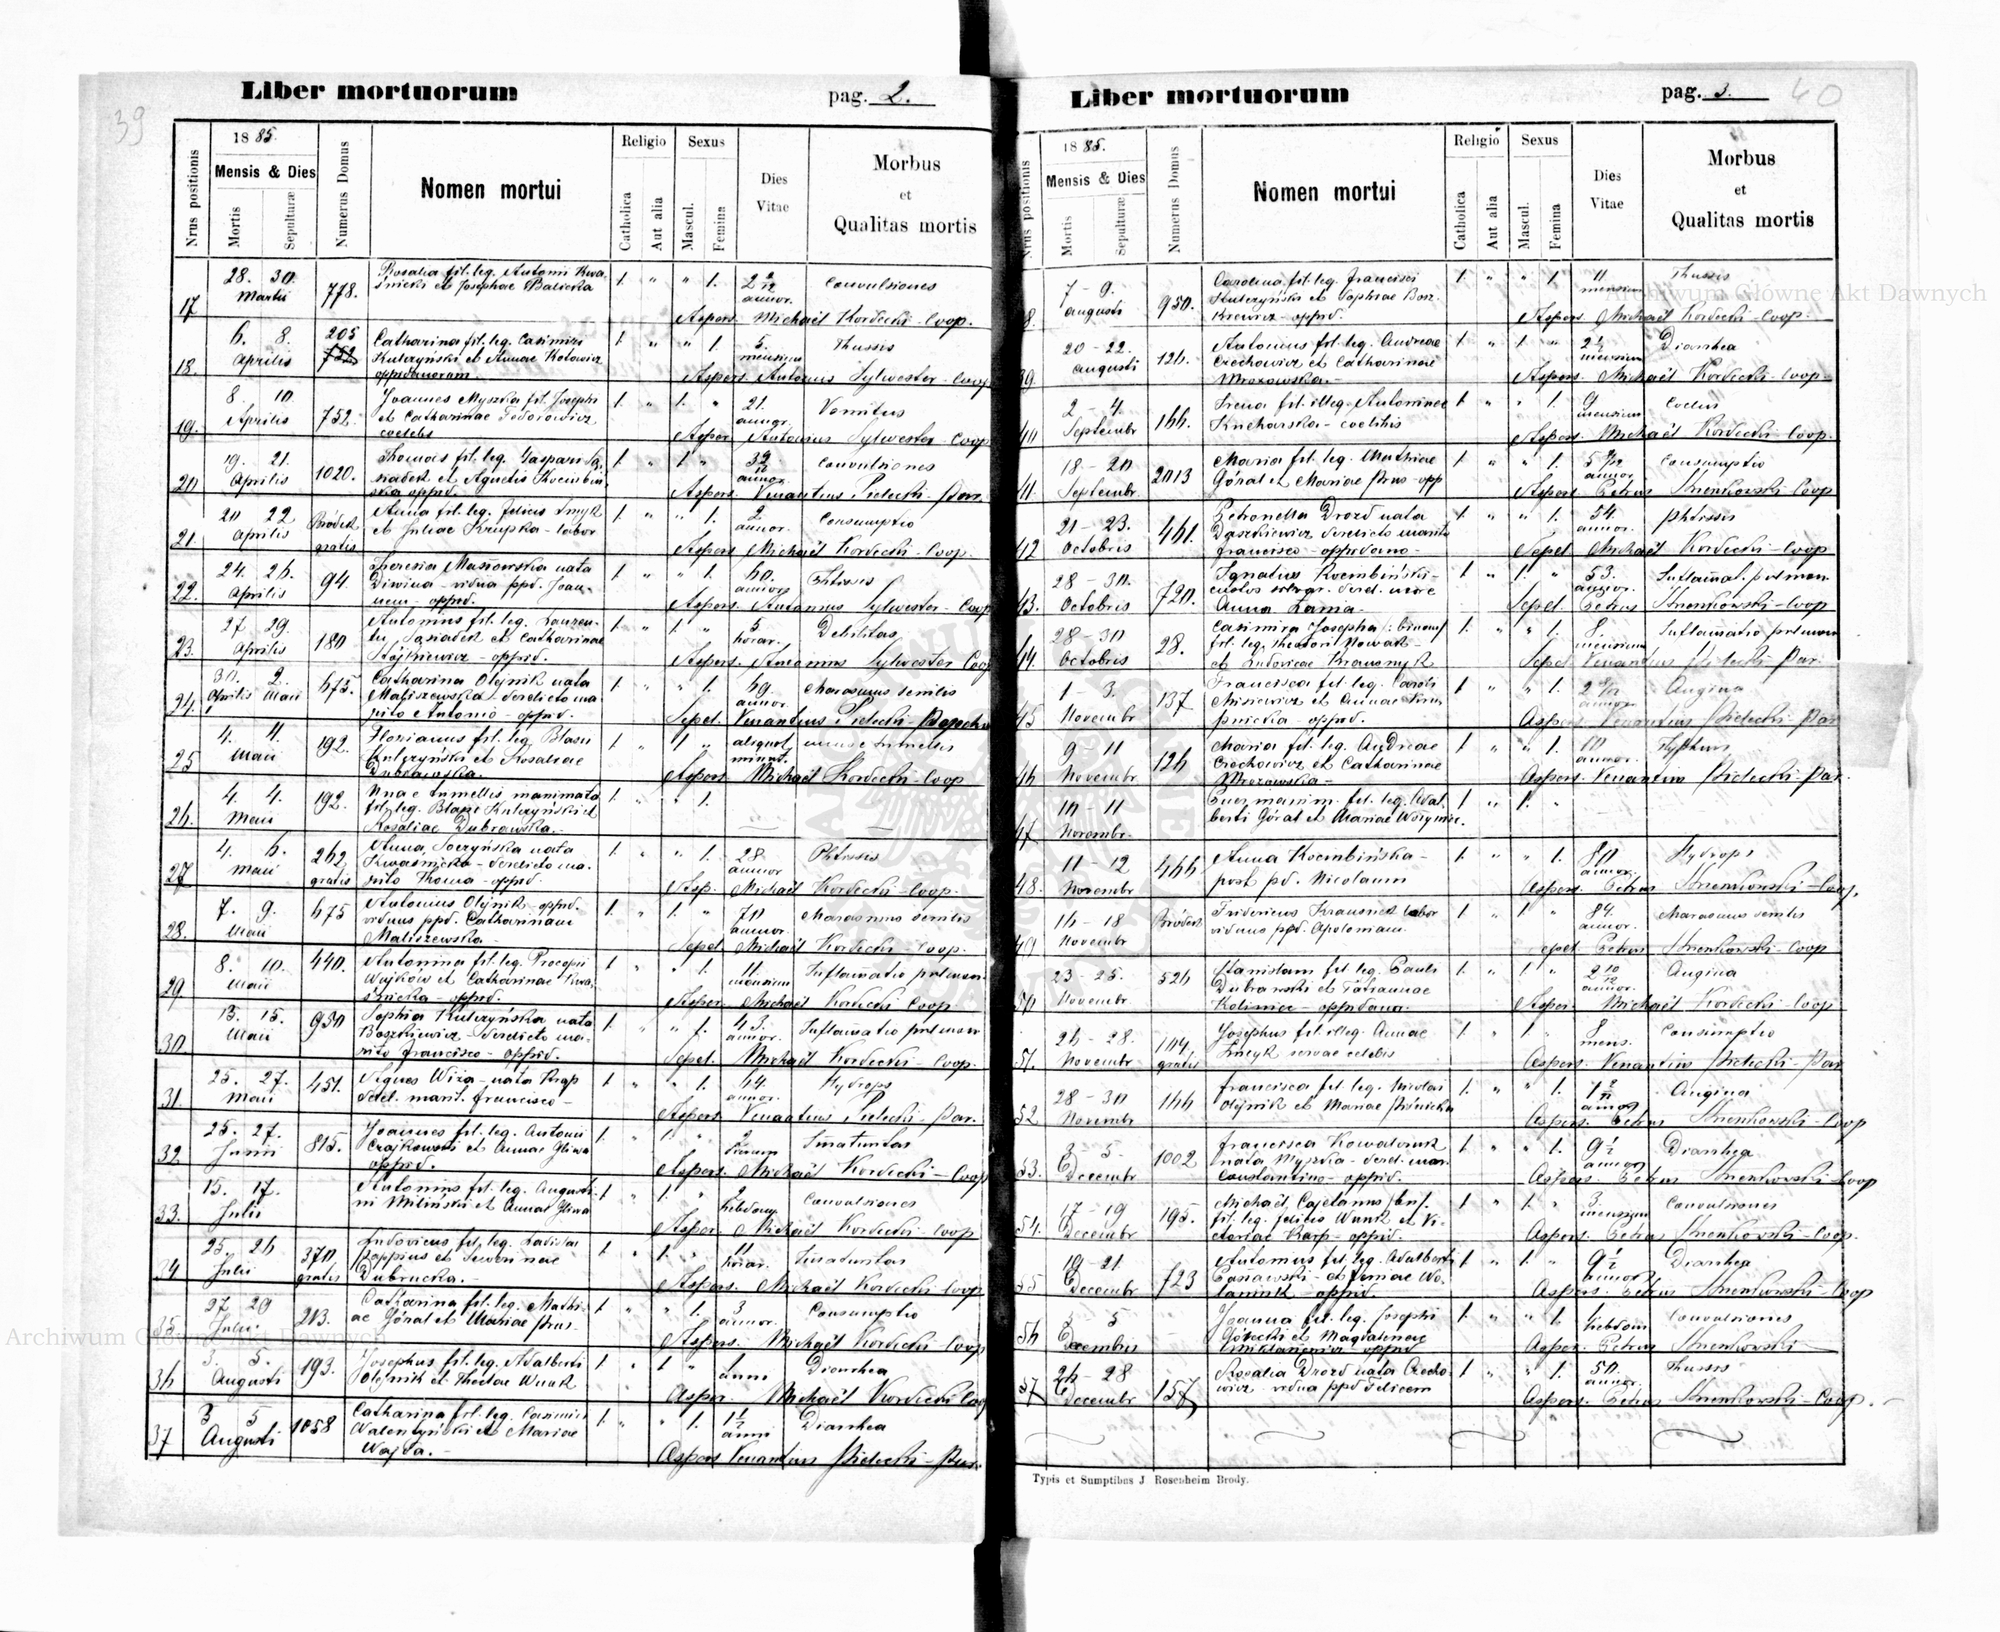 39
Liber mortuorum
pag. 2.
Nrus positionis
1885.
Mensis & Dies
Mortis
Sepulturæ
Numerus Domus
Nomen mortui
Religio
Catholica
Aut alia
Sexus
Mascul.
Femina
Dies
Vitae
Morbus
et
Qualitas mortis
17 28. 30. Martii 778.
Rosalia fil. leg. Antonii Kwa-
śnicki et Josephae Balicka
1. " " 1. 2 2/12 annor. Convulsiones
Aspers. Michaël Kordecki-Coop.
18. 6. 8. Aprilis 205
Catharina fil. leg. Casimiri
Kulczyński et Annae Kotowicz
oppidanorum.
1. " " 1 5. mensium Thussis
Aspers. Antonius Sylwester-Coop
19. 8. 10. Aprilis 752.
Joannes Myszka fil. Josephi
et Catharinae Fedorowicz
coelebs
1. " 1. " 21. annor. Vomitus
Aspers. Antonius Sylwester-Coop
20 19. 21. Aprilis 1020.
Thomas fil. leg. Gaspari Są-
siadek et Agnetis Kociubiń-
ska oppid.
1. " 1 " annor. Convulsiones
Aspers. Venantius Pielecki-Par.
21. 20 22 Aprilis Bródek gratis
Anna fil. leg. Felicis Smyk
et Juliae Krupka-labor
1. " " 1. 2 annor. Consumptio
Aspers. Michaël Kordecki-Coop.
22. 24. 26. Aprilis 94.
Theresia Masiowska nata
Diwina-vidua ppd. Joan-
nem-oppid.
1. " " 1. 60. annor. Phtisis
Aspers. Antonius Sylwester-Coop
23. 27 29. Aprilis 180
Antonius fil. leg. Lauren-
tii Sąsiadek et Catharinae
Stójkiewicz-oppid.
1. " 1. " 5 horar. Debilitas
Aspers. Antonius Sylwester Coop
24. 30. 2. Aprilis Maii 675.
Catharina Olejnik nata
Maliszewska derelicto ma-
rito Antonio-oppid.
1. " " 1. 69. annor. Marasmus senilis
Sepel. Venantius Pielecki-
25 4. 4. Maii 192.
Florianus fil. leg. Blasii
Kulczyński et Rosaliae
Dubrawska.
1. " 1 " aliquot minut. unus e tumellis
Aspers. Michaël Kordecki-Coop
26. 4. 4. Maii 192.
Una e tumellis inanimata
fil. leg. Blasii Kulczyński et
Rosaliae Dubrawska.-
27 4. 6. Maii 262 gratis
Anna Soczyńska nata
Kwaśnicka-derelicto ma-
rito Thoma-oppid.
1. " " 1. 28 annor Phtissis
Asp. Michaël Kordecki-Coop.
28. 7. 9. Maii 675
Antonius Olejnik-oppid.
viduus ppd. Catharinam
Maliszewska
1. " 1. " 70 annor. Marasmus senilis
Sepel. Michaël Kordecki-Coop.
29. 8. 10. Maii 440.
Antonina fil. leg. Procopii
Wujków et Catharinae Kwa-
śnicka-oppid.
1. " 1. 11. mensium Inflamatio pulmon.
Aspers. Michaël Kordecki Coop.
30. 13. 15. Maii 930
Sophia Kulczyńska nata
Boszkiewicz-derelicto ma-
rito Francisco-oppid.
1. " " 1. 43. annor. Inflamatio pulmon
Sepel. Michaël Kordecki-Coop.
31. 25. 27. Maii 451.
Agnes Wiża-nata Krap
derel. marit. Francisco-
1. " " 1. 64. annor. Hydrops
Aspers. Venantius Pielecki-Par.
32 25. 27. Junii 815.
Joannes fil. leg. Antonii
Czajkowski et Annae Gliwa
oppid.
1. " 1. " 2 Imaturitas
Aspers. Michaël Kordecki-Coop
33. 15. 17. Julii
Antonius fil. leg. Augusti-
ni Miliński et Annae Gliwa
1. " 1. " 2 hebdom. Convulsiones
Aspers. Michaël Kordecki-Coop
34 25 26 Julii 370 gratis
Ludovicus fil. leg. Ladislai
Pappius et Severinae
Dubrucka.-
1. " 1. " 11 horar. Imaturitas
Aspers. Michaël Kordecki Coop
35. 27 29 Julii 213.
Catharina fil. leg. Mathi-
ae Góral et Mariae Prus-
1. " " 1. 3 annor. Consumptio
Aspers. Michaël Kordecki Coop
36 3. 5. Augusti 193.
Josephus fil. leg. Adalberti
Olejnik et Theclae Wnuk
1. " 1 " 1 anni Diarrhea
Aspers. Michaël Kordecki Coop
37 3 5 Augusti 1058
Catharina fil. leg. Casimiri
Walentyński et Mariae
Wajda.-
1. " " 1. 1½ anni Diarrhea
Aspers Venantius Pielecki-Par.
Liber mortuorum
pag. 3.
40
Nrus positionis
1885.
Mensis & Dies
Mortis
Sepulturæ
Numerus Domus
Nomen mortui
Religio
Catholica
Aut alia
Sexus
Mascul.
Femina
Dies
Vitae
Morbus
et
Qualitas mortis
38. 7-9. Augusti 930.
Carolina fil. leg. Francisci
Kulczyński et Sophiae Bosz-
kiewicz-oppid.
1. " " 1. 11 mensium Thussis
Aspers. Michaël Kordecki-Coop.
39. 20-22. Augusti 126.
Antonius fil. leg. Andreae
Czechowicz et Catharinae
Mrozowska.-
1. " 1. " 2½ mensium Diarrhea
Aspers. Michaël Kordecki-Coop.
40 2-4. Septembr 166.
Irena fil. illeg. Antoninae
Kucharska-coelibis
1. " " 1. 9 mensium
Aspers. Michaël Kordecki-Coop.
41 18-20 Septembr 2013
Maria fil. leg. Mathiae
Góral et Mariae Prus-opp
1. " " 1. annor Consumptio
Aspers. Petrus Smenkowski Coop
42 21-23. Octobris 461.
Petronella Drozd nata
Daszkiewicz derelicto marito
Francisco-oppidano-
1. " " 1. 54. annor. Phtissis
Sepel. Michaël Kordecki-Coop
43. 28-30. Octobris 720.
Ignatius Kociubiński-
custos silvar. derel. uxore
Anna Lama-
1. " 1. " 53. annor. Inflamat. pulmon.
Sepel. Petrus Smenkowski-Coop
44. 28-30 Octobris 28.
Casimira Josepha /: binom/
fil. leg. Theodori Nowak-
et Ludovicae Krawczyk
1. " " 1. 8. mensium Inflamatio pulmon
Sepel. Venantius Pielecki-Par.
45 1 3. Novembr 137
Francisca fil. leg. Caroli
Misiewicz et Annae Kru-
pnicka-oppid.
1. " " 1. annor. Angina
Aspers. Venantius Pielecki-Par
46 9-11 Novembr 126
Maria fil. leg. Andreae
Czechowicz et Catharinae
Mrozowska-
1. " " 1. 10 annor. Typhus
Aspers. Venantius Pielecki-Par.
47 10-11 Novembr.
Puer inanim. fil. leg. Adal-
berti Góral et Mariae
1. " 1. "
48. 11-12 Novembr 466
Anna Kociubińska-
post pd. Nicolaum
1. " " 1. 80 annor. Hydrops
Aspers. Petrus Smenkowski-Coop.
49 16-18 Novembr Bródek
Fridericus Krausnek labor
viduus ppd. Apoloniam.
1. " 1. " 84. annor. Marasmus senilis
Sepel. Petrus Smenkowski-Coop
50 23-25. Novembr 526
Stanislaus fil. leg. Pauli
Dubrawski et Tatianae
Kalinicz-oppidanor.
1. " 1 " 2 10/12 annor. Angina
Aspers. Michaël Kordecki-Coop
51. 26-28. Novembr 104 gratis
Josephus fil. illeg. Annae
Smyk servae celebis
1. " 1 " 8 mens. Consumptio
Aspers. Venantius Pielecki-Par
52 28-30 Novembr 166
Francisca fil. leg. Nicolai
Olejnik et Mariae
1. " " 1. annor Angina
Aspers. Petrus Smenkowski-Coop
53. 3-5. Decembr 1002
Francisca Kowalczuk
nata Myszka-derel. mar.
Constantino-oppid.
1. " " 1. 9½ annor Diarrhea
Aspers. Petrus Smenkowski-Coop
54. 17-19 Decembr 195.
Michaël Cajetanus /bin/.
fil. leg. Felicis Wnuk et Vi-
ctoriae Karp-oppid.
1. " 1 " 3 mensium Convulsiones
Aspers. Petrus Smenkowski-Coop.
55 19-21. Decembr 723
Antonius fil. leg. Adalberti
et Annae Wo-
-oppid.
1. " 1. " 9½ annor Diarrhea
Aspers. Petrus Smenkowski-Coop
56 3-5. Decembris
Joanna fil. leg. Josephi
Górecki et Magdalenae
oppid
1. " " 1. hebdom Convulsiones
Aspers. Petrus Smenkowski
57 26-28 Decembr 157
Rosalia Drozd nata Czecho-
wicz-vidua ppd Felicem
1. " " 1. 50. annor. Thussis
Aspers. Petrus Smenkowski-Coop.-
Typis et Sumptibus J Rosenheim Brody.
Archiwum Główne Akt Dawnych
Archiwum Główne Akt Dawnych